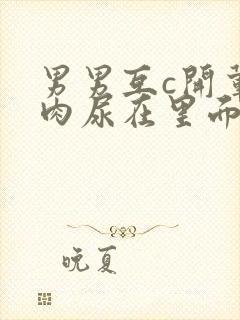 男男互c開葷
肉尿在里而
晚夏